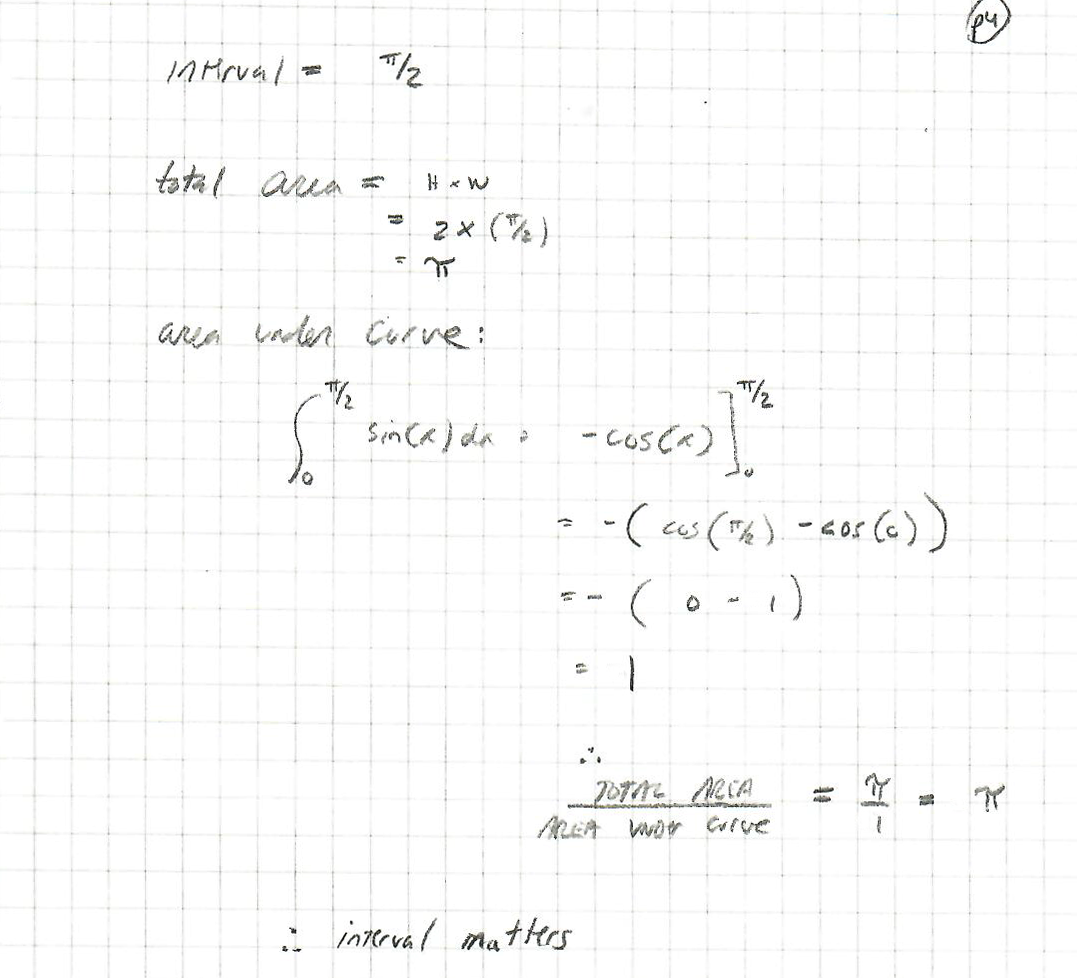 p4
interval = π/2
total area = H × W
= 2 × (π/2)
= π
area under curve:
∫₀^π/2 sin(x) dx = -cos(x) ]₀^π/2
= -( cos(π/2) - cos(0) )
= - ( 0 - 1 )
= 1
∴
TOTAL AREA / AREA UNDER CURVE = π/1 = π
∴ interval matters